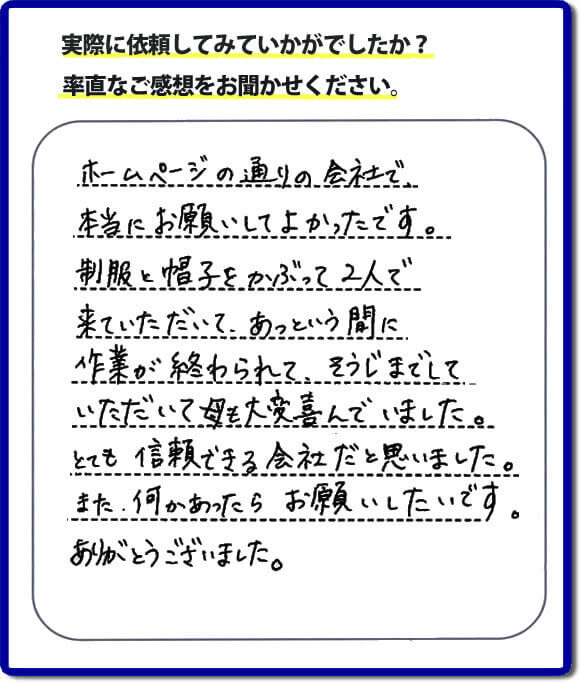 実際に依頼してみていかがでしたか？
率直なご感想をお聞かせください。
ホームページの通りの会社で、
本当にお願いしてよかったです。
制服と帽子をかぶって2人で
来ていただいて、あっという間に
作業が終わられて、そうじまでして
いただいて母も大変喜んでいました。
とても信頼できる会社だと思いました。
また、何かあったらお願いしたいです。
ありがとうございました。